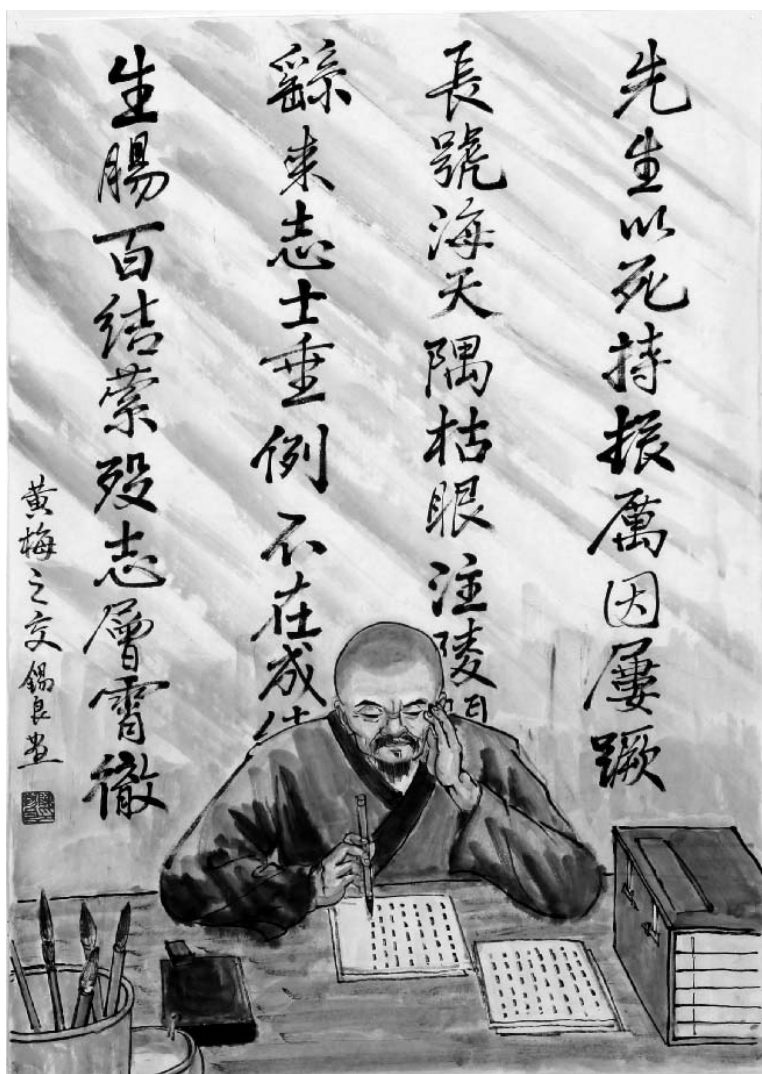 先生以死持振厲因屢蹶
長號海天隅枯眼注陵
繇来志士垂例不在成
生腸百結縈殁志層霄徹
黄梅之交錫良畫